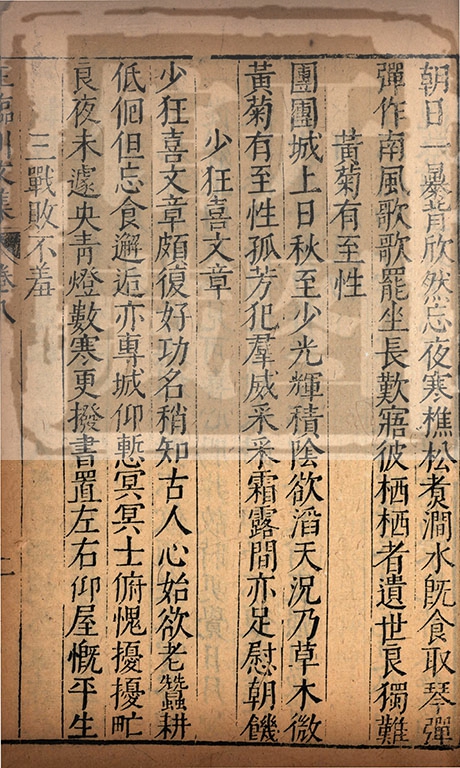 朝日一暴背欣然忘夜寒樵松煑澗水旣食取琴彈
彈作南風歌歌罷坐長歎寤彼栖栖者遺世良獨難
黃菊有至性
團團城上日秋至少光輝積陰欲滔天況乃草木微
黃菊有至性孤芳犯羣威采采霜露間亦足慰朝饑
少狂喜文章
少狂喜文章頗復好功名稍知古人心始欲老蠶耕
低佪但忘食邂逅亦專城仰慙冥冥士俯愧擾擾甿
良夜未遽央靑燈數寒更撥書置左右仰屋慨平生
三戰敗不羞
王臨川文集 卷八